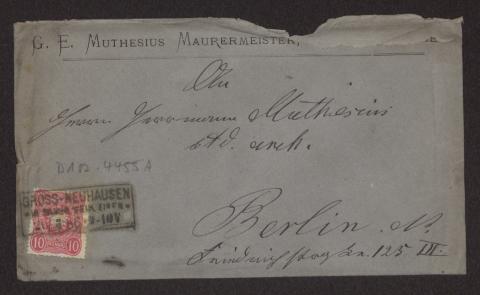 G. E. MUTHESIUS MAURERMEISTER,
An
Herrn Herrmann Muthesius
std. arch.
D102-4455A
GROSS-NEUHAUSEN
10
10
Berlin. N.
Friedrichstraße. 125 III.